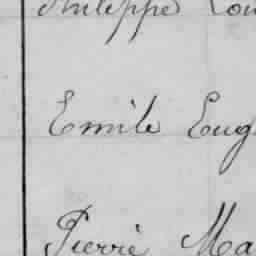 Philippe Lou
Emile Eug
Pierre Ma